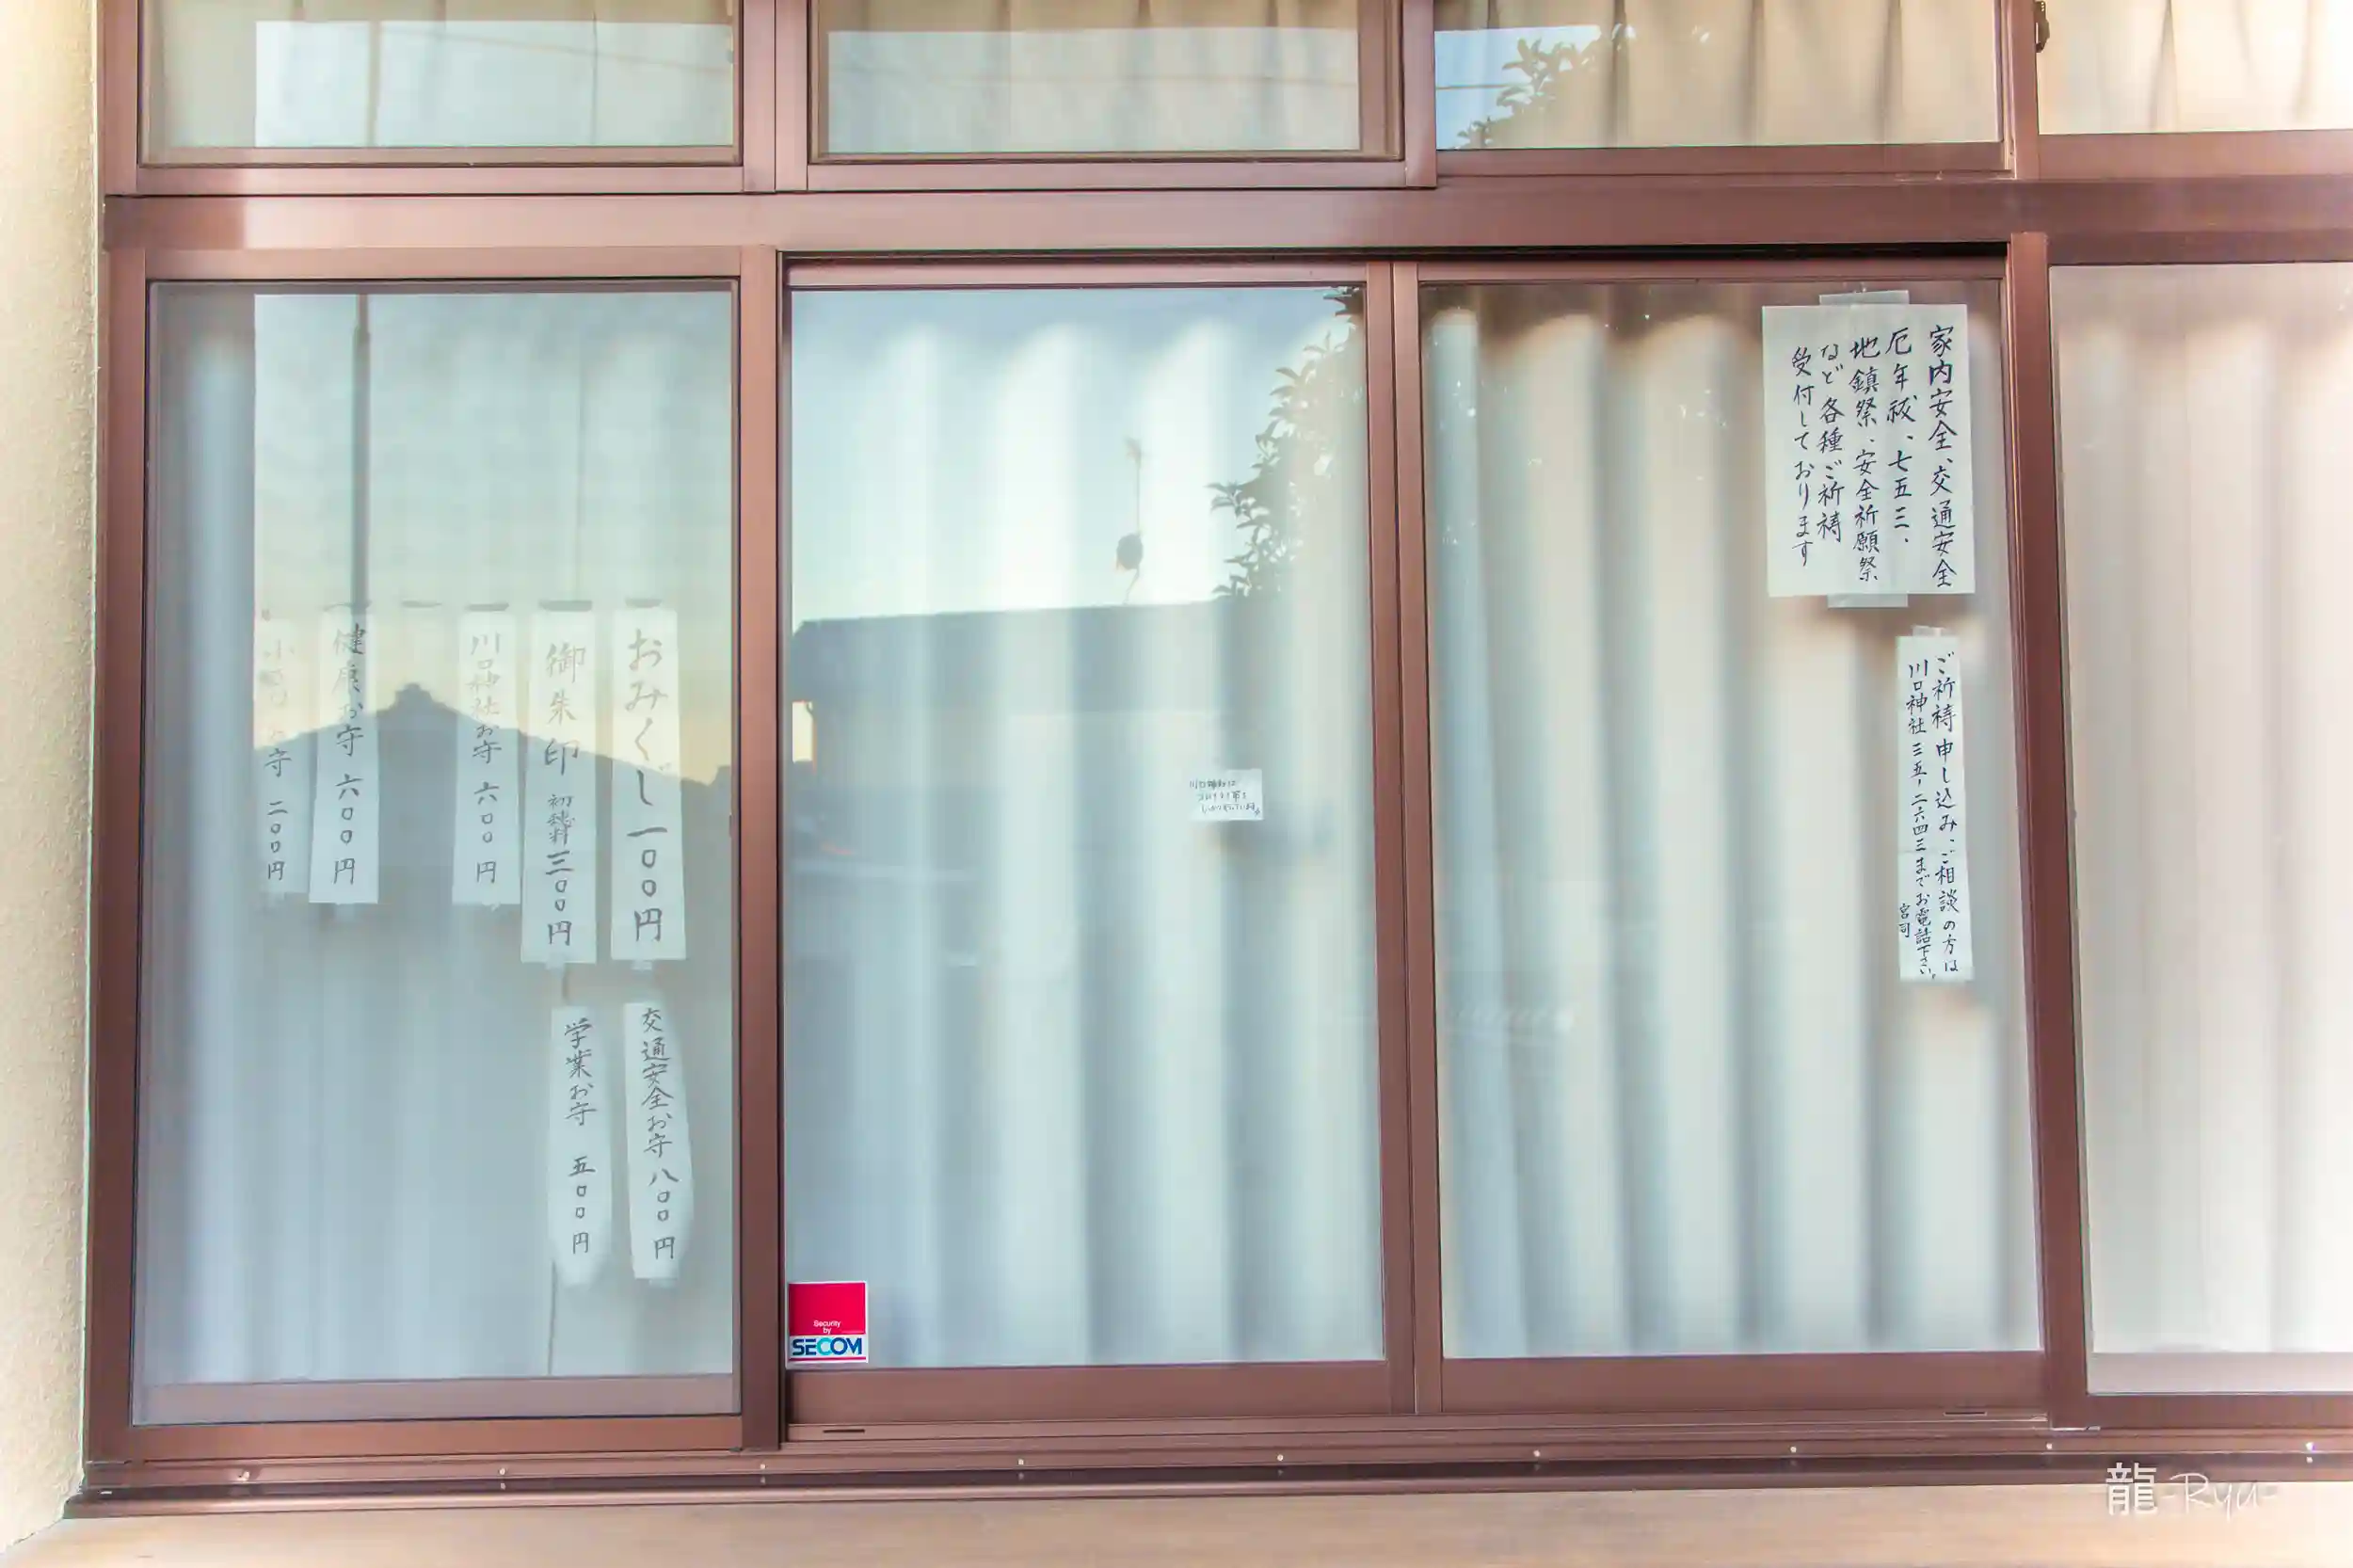 家内安全、交通安全
厄年祓、七五三、
地鎮祭、安全祈願祭
など各種ご祈祷
受付しております
ご祈祷申し込み、ご相談の方は
川口神社 三五-二六四三までお電話下さい。
宮司
おみくじ 一〇〇円
御朱印 初穂料 三〇〇円
川口神社お守 六〇〇円
健康お守 六〇〇円
守 二〇〇円
交通安全お守 八〇〇円
学業お守 五〇〇円
Security
by
SECOM
龍-Ryu-